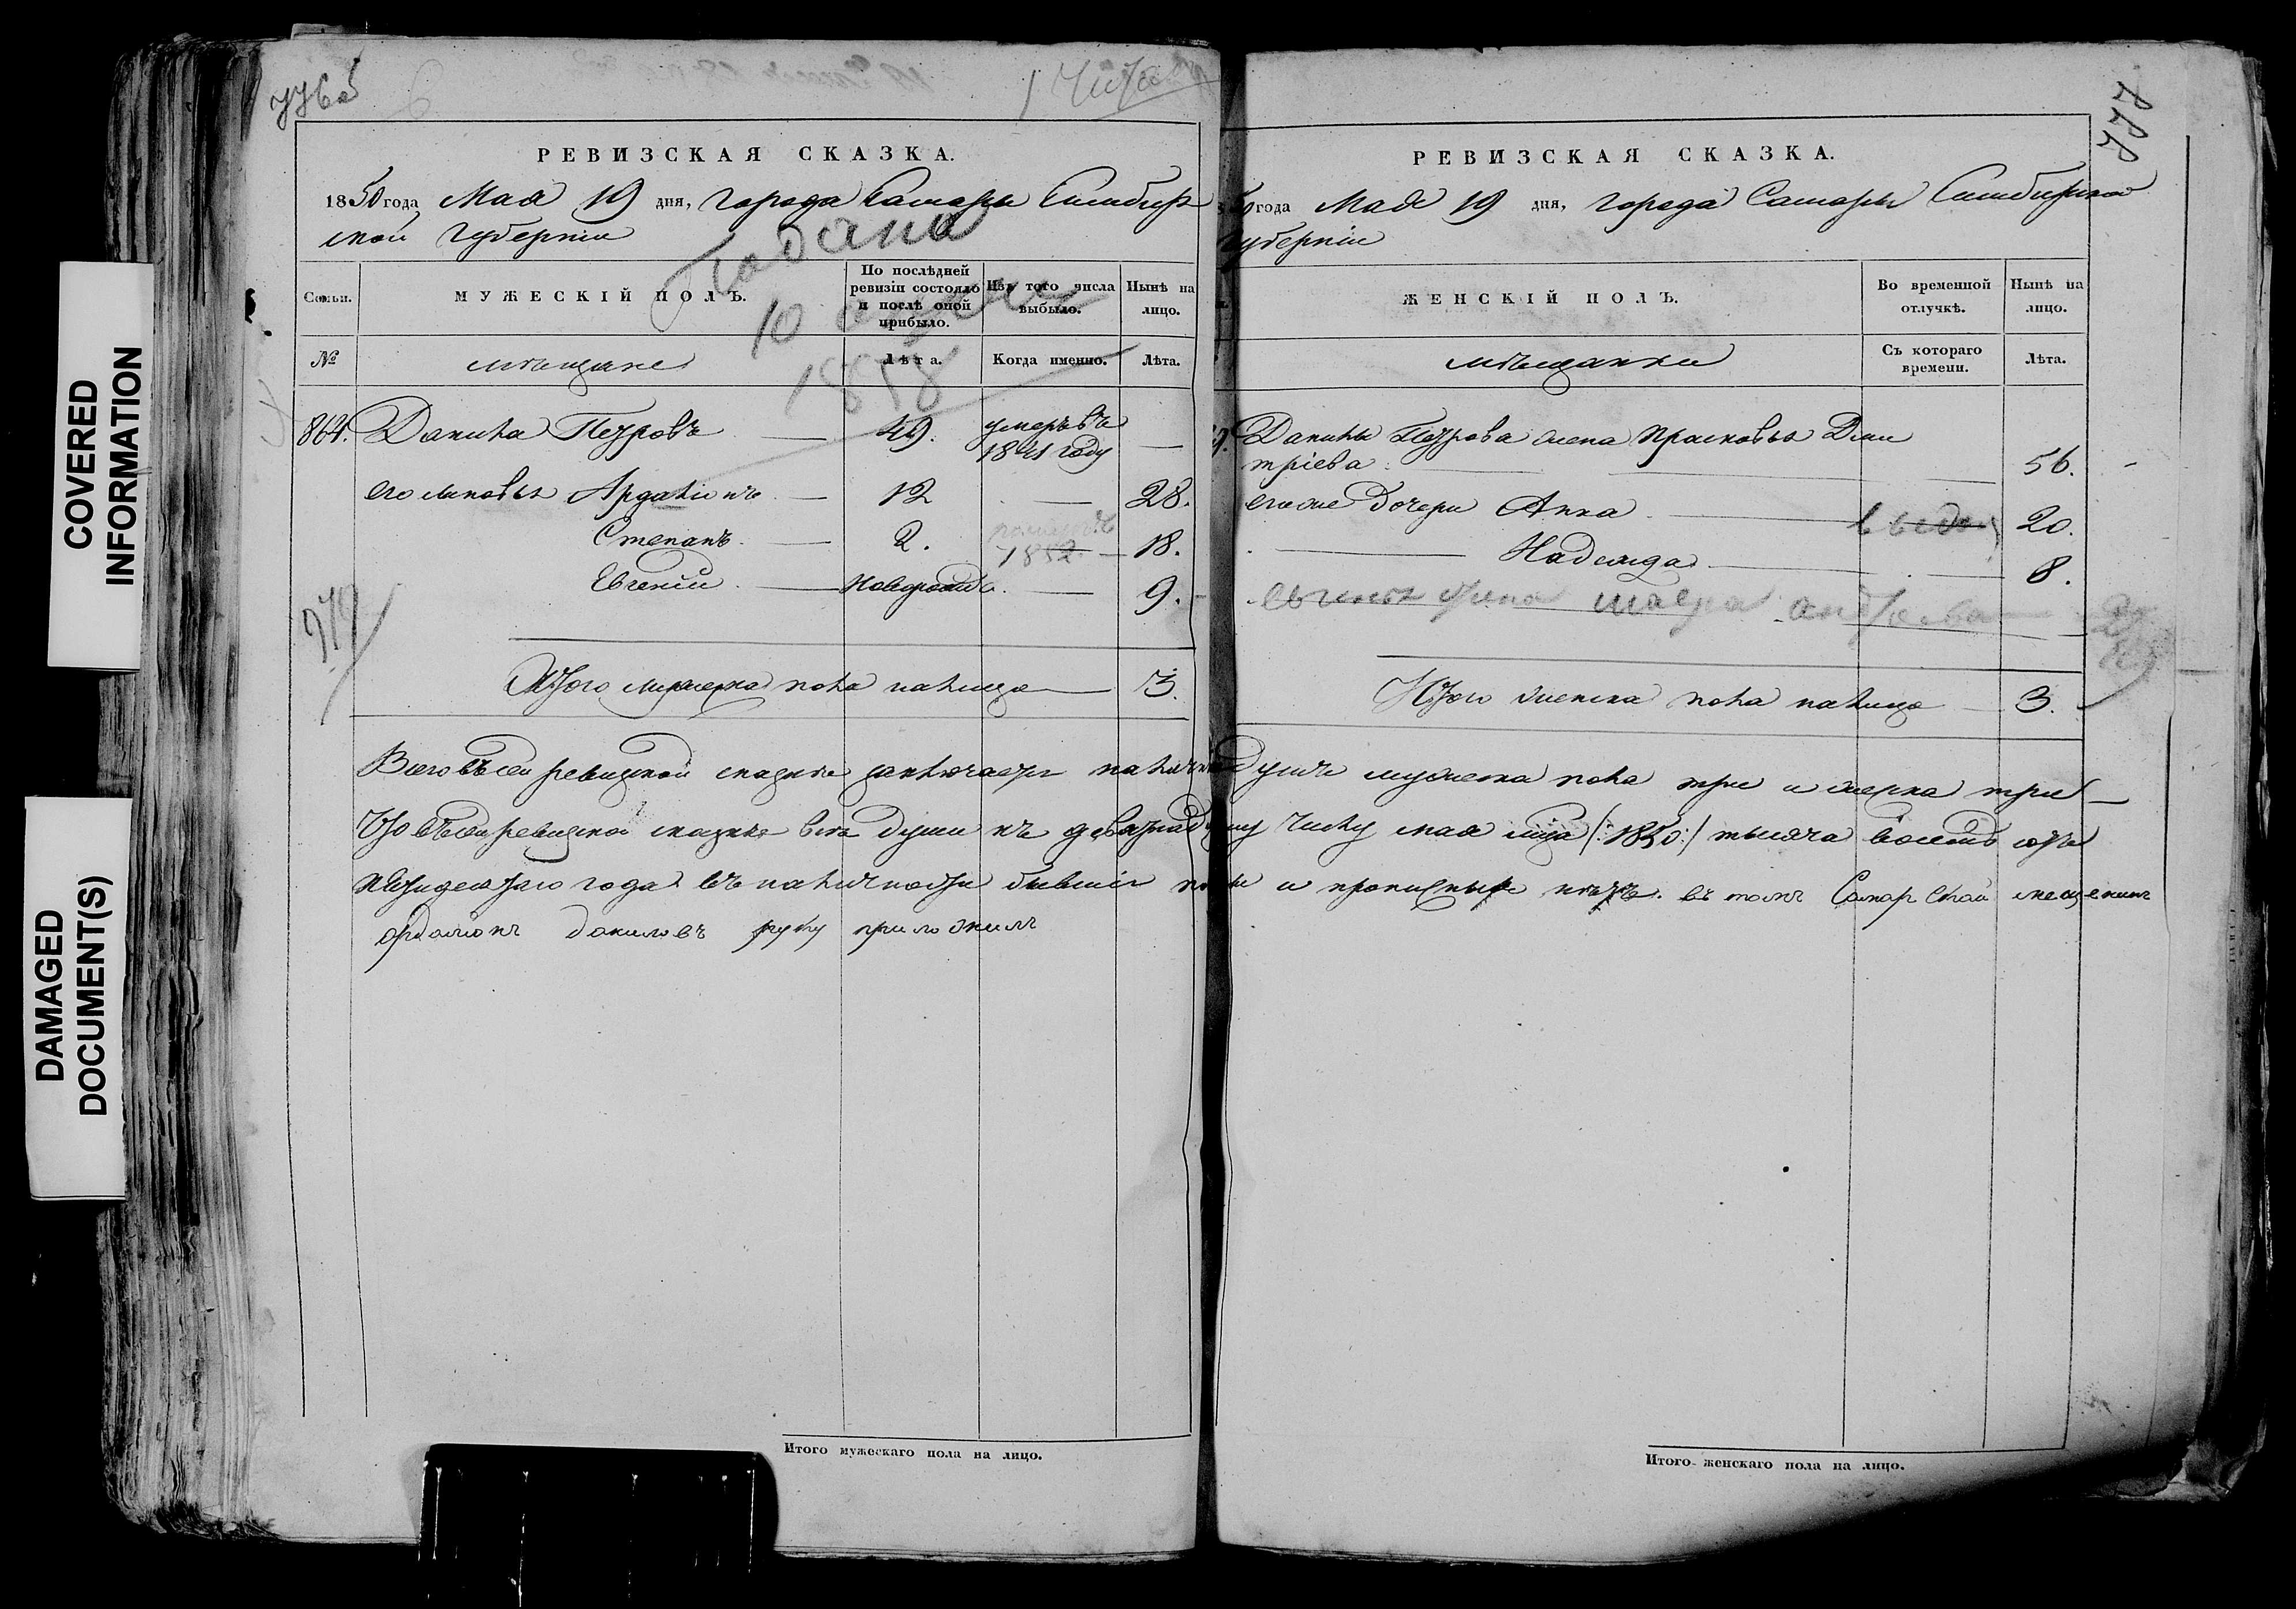 COVERED
INFORMATION
DAMAGED
DOCUMENT(S)
776об
РЕВИЗСКАЯ СКАЗКА.
1850 года Мая 19 дня, города Самары Симбир
ской губернии
Подана
10
1858
Семьи.
МУЖЕСКІЙ ПОЛЪ.
По послѣдней
ревизіи состояло
и послѣ оной
прибыло.
Изъ того числа
выбыло.
Нынѣ на
лицо.
№
мѣщане
Лѣта.
Когда именно.
Лѣта.
864. Данила Петровъ — 49. умеръ въ 1841 году —
его сыновья Ардалiонъ — 12 — 28.
Степанъ — 2. 1852 — 18.
Евгеній — новорожд. — 9.
979
Итого мужеска пола налицо — 3.
777
РЕВИЗСКАЯ СКАЗКА.
года Мая 19 дня, города Самары Симбирской
губерніи
ЖЕНСКІЙ ПОЛЪ.
Во временной
отлучкѣ.
Нынѣ на
лицо.
мѣщанки
Съ котораго
времени.
Лѣта.
Данилы Петрова жена Прасковья Дми
тріева — 56.
его же дочери Анна — 20.
Надежда — 8.
Итого женска пола налицо — 3.
Всего въ сей ревизской сказке заключается наличныхъ душъ мужеска пола три и женска три —
Что въ сей ревизской сказке все души къ девятнадцатому числу мая мца /:1850:/ тысяча восемь сотъ
пятидесятаго года въ наличности бывшiя показаны и прописных нѣтъ. въ томъ Самарской мещенинъ
ардалионъ даниловъ руку приложилъ
Итого мужескаго пола на лицо.
Итого женскаго пола на лицо.